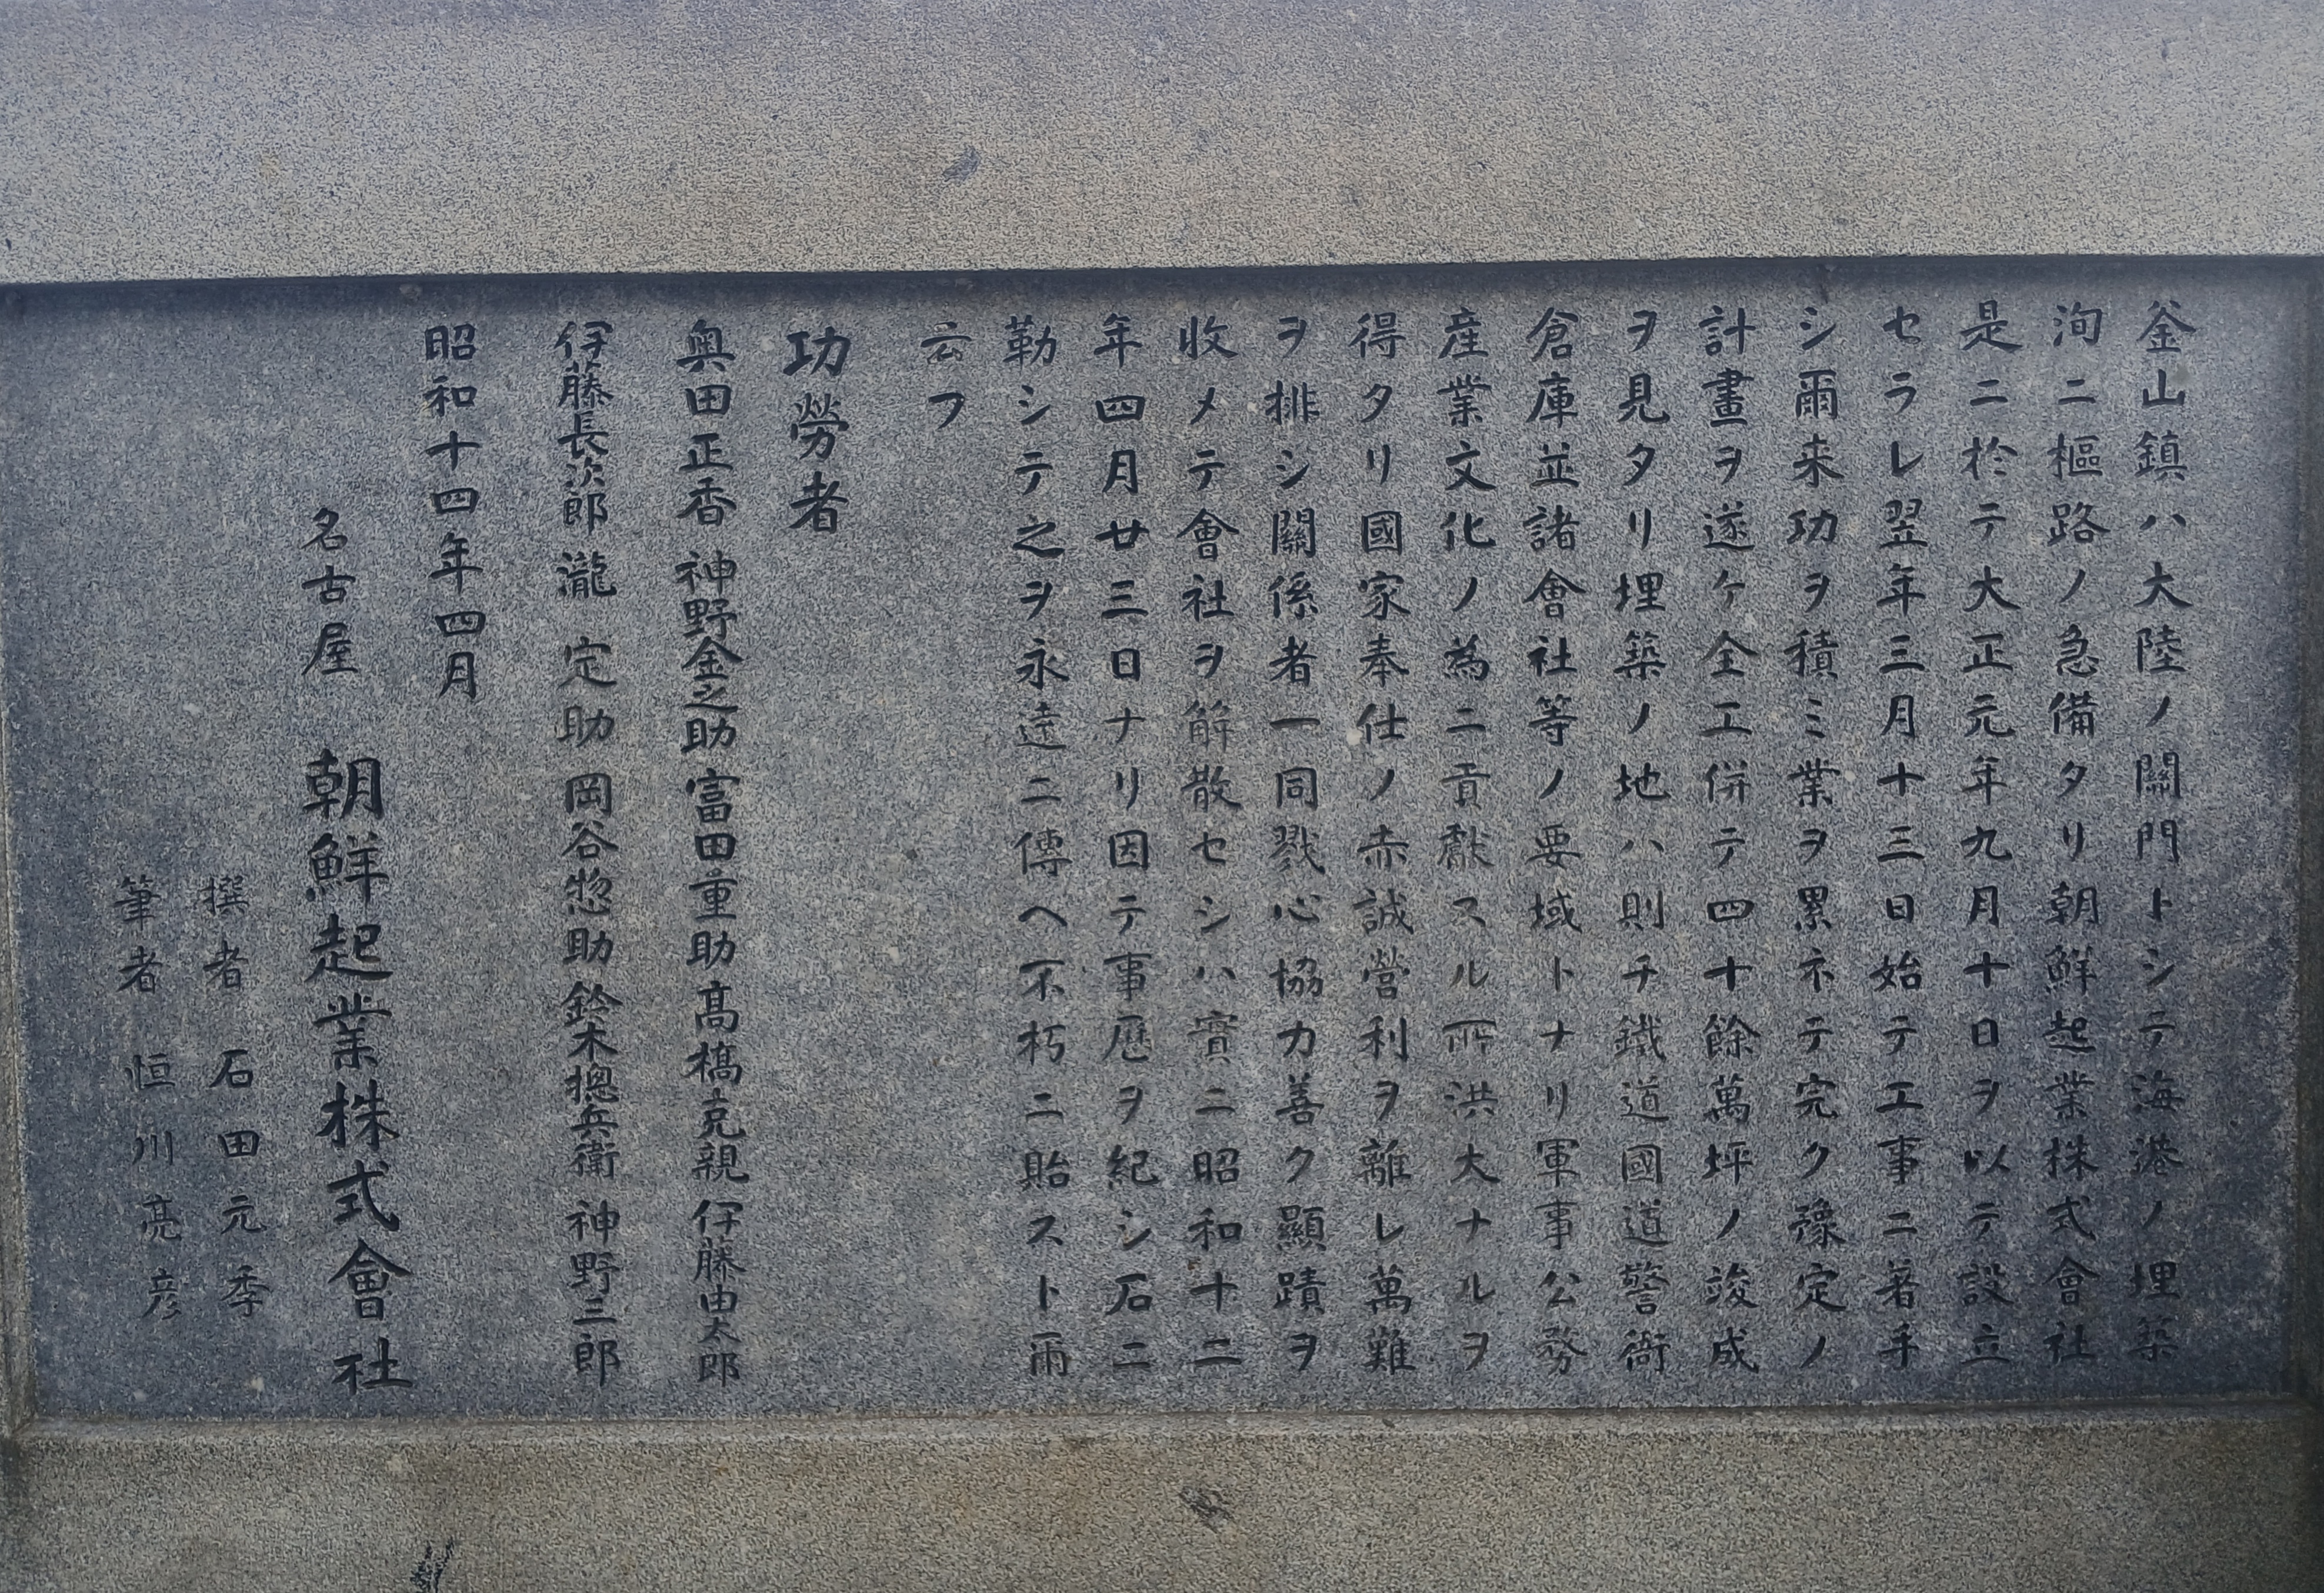 釜山鎮ハ大陸ノ關門トシテ海港ノ埋築
洵ニ樞路ノ急備タリ朝鮮起業株式會社
是ニ於テ大正元年九月十日ヲ以テ設立
セラレ翌年三月十三日始テ工事ニ著手
シ爾来功ヲ積ミ業ヲ累ネテ完ク豫定ノ
計畫ヲ遂ケ全工併テ四十餘萬坪ノ竣成
ヲ見タリ埋築ノ地ハ則チ鐵道國道警衛
倉庫並諸會社等ノ要域トナリ軍事公務
産業文化ノ為ニ貢献スル所洪大ナルヲ
得タリ國家奉仕ノ赤誠營利ヲ離レ萬難
ヲ排シ關係者一同戮心協力善ク顯蹟ヲ
收メテ會社ヲ解散セシハ實ニ昭和十二
年四月廿三日ナリ因テ事歴ヲ紀シ石ニ
勒シテ之ヲ永遠ニ傳ヘ不朽ニ貽スト爾
云フ
功勞者
奥田正香 神野金之助 富田重助 髙橋克親 伊藤由太郎
伊藤長次郎 瀧定助 岡谷惣助 鈴木摠兵衛 神野三郎
昭和十四年四月
名古屋 朝鮮起業株式會社
撰者 石田元季
筆者 恒川亮彦